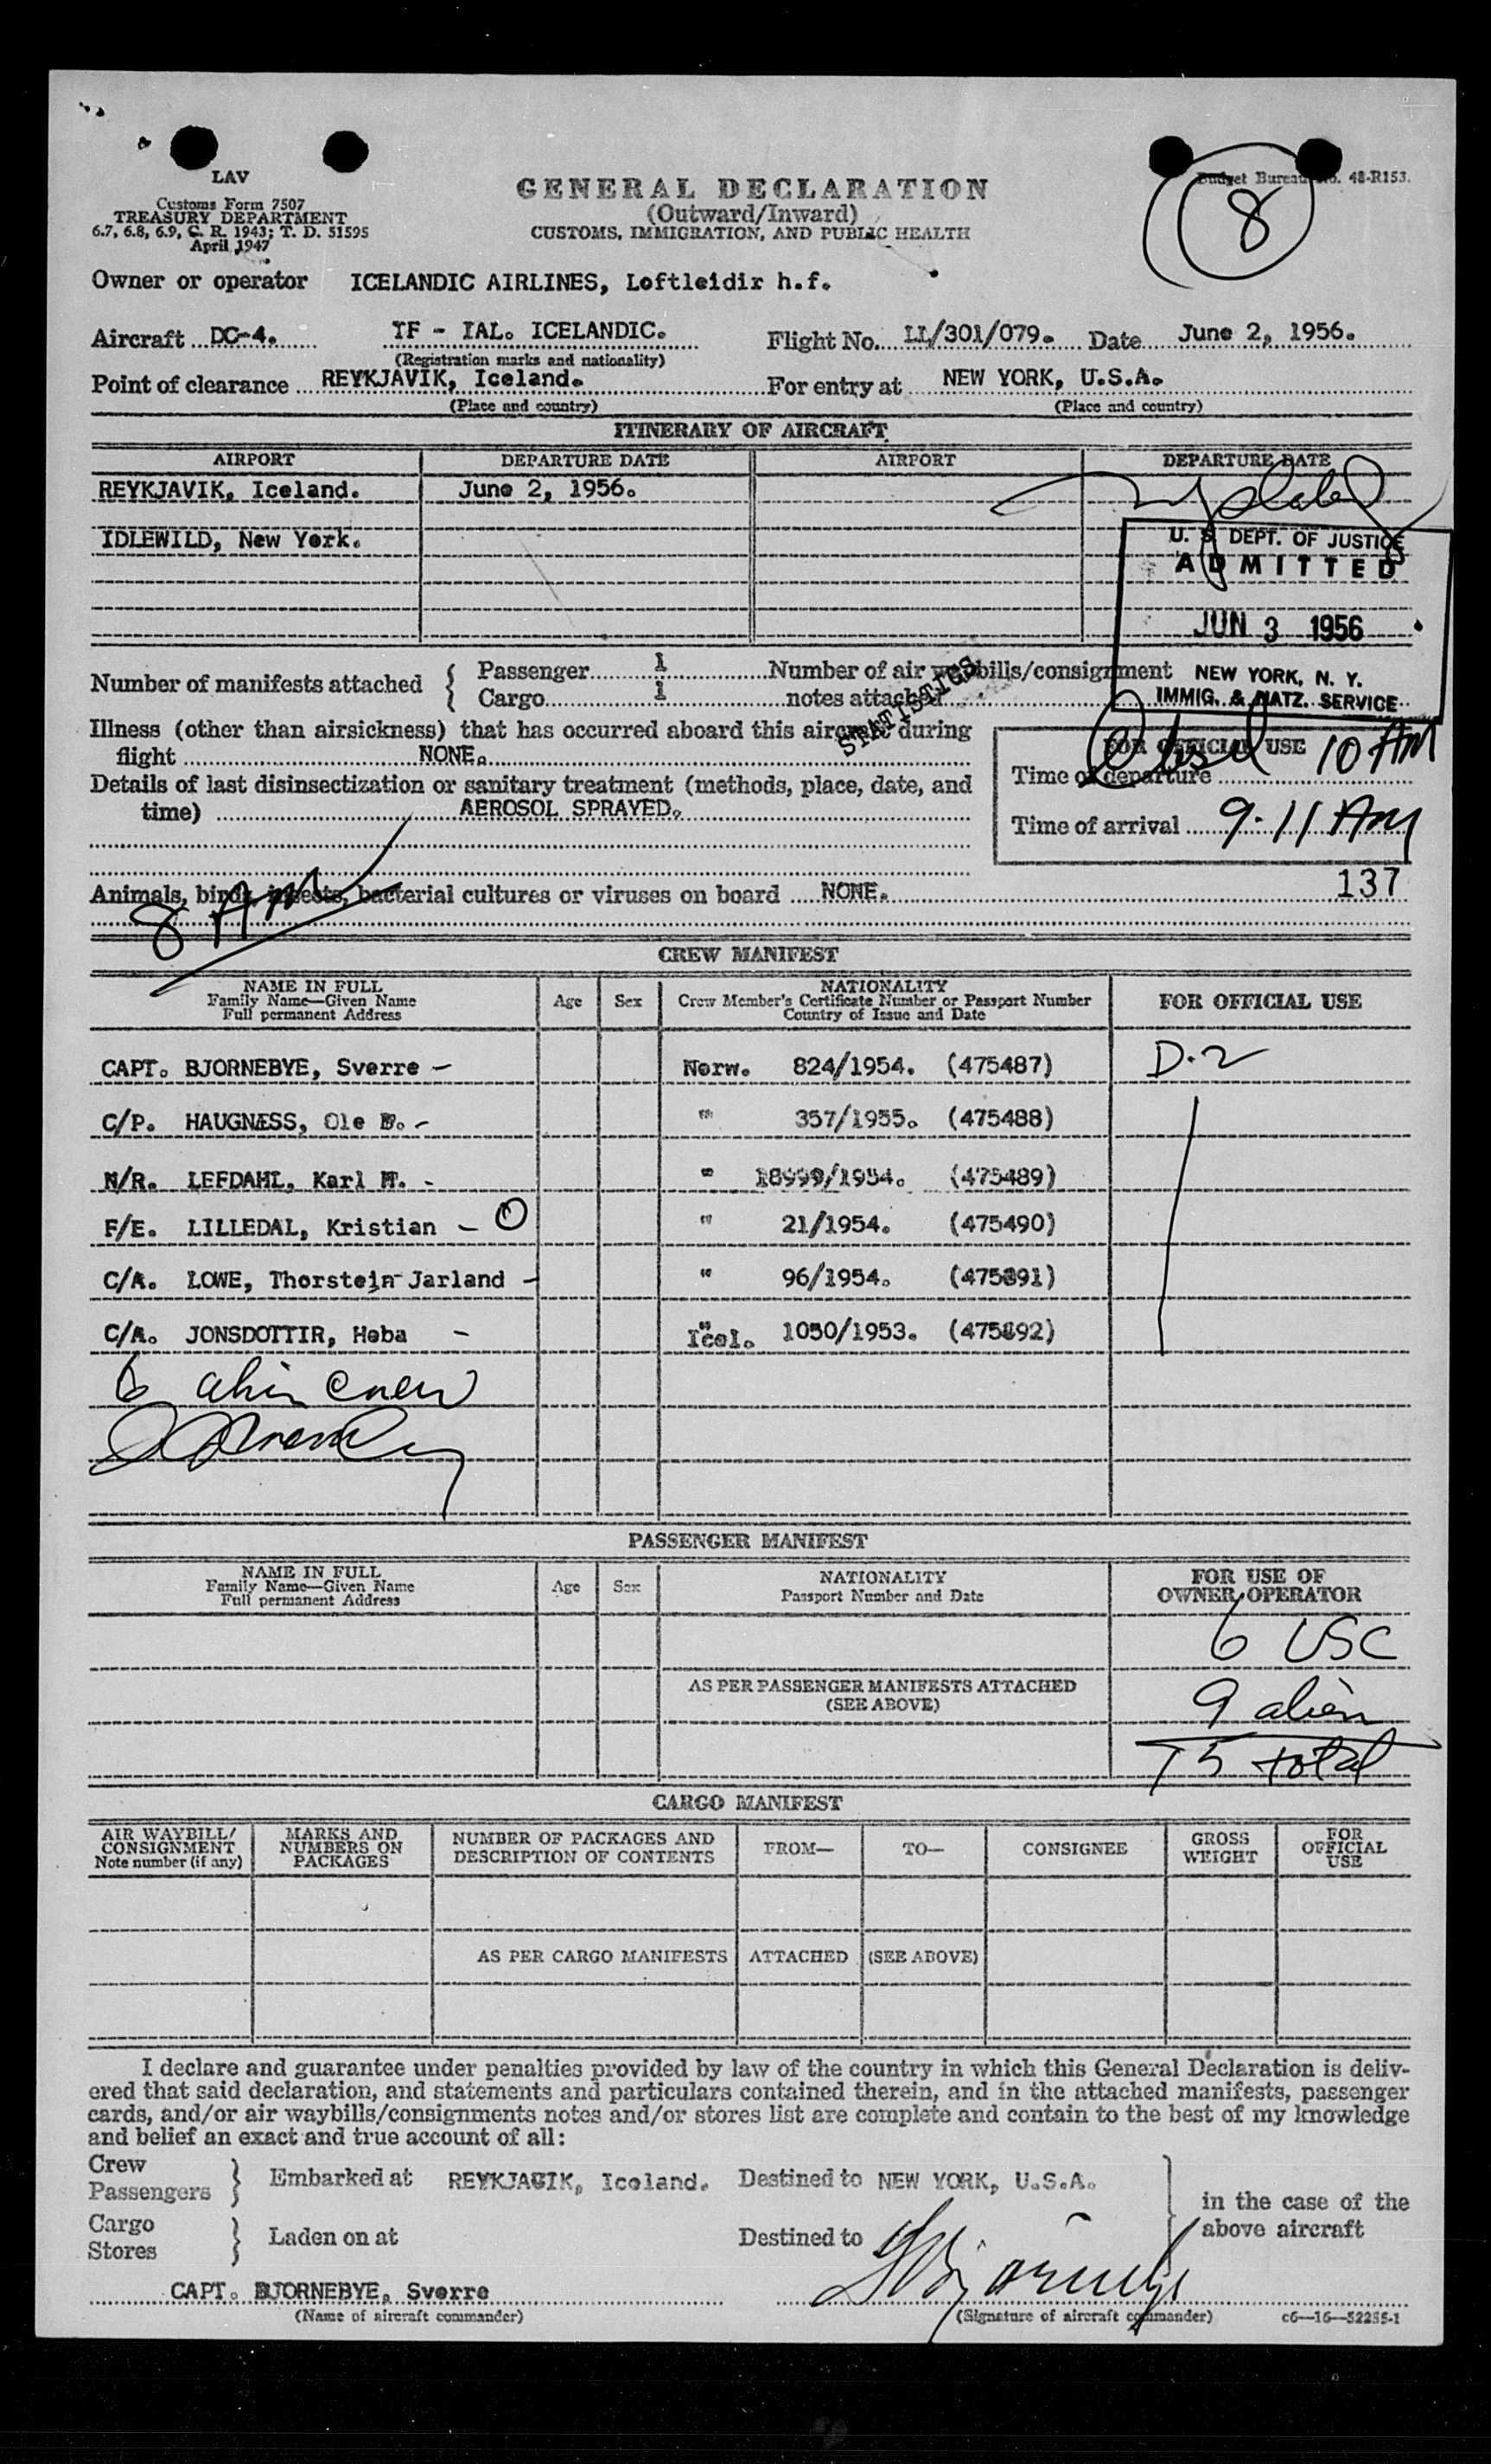 LAV
Customs Form 7507
TREASURY DEPARTMENT
6.7, 6.8, 6.9, C. R. 1943; T. D. 51595
April 1947
GENERAL DECLARATION
(Outward/Inward)
CUSTOMS, IMMIGRATION, AND PUBLIC HEALTH
Budget Bureau No. 48-R153.
8
Owner or operator ICELANDIC AIRLINES, Loftleidir h.f.
Aircraft DC-4. TF - IAL. ICELANDIC. Flight No. LL/301/079. Date June 2, 1956.
(Registration marks and nationality)
Point of clearance REYKJAVIK, Iceland. For entry at NEW YORK, U.S.A.
(Place and country) (Place and country)
ITINERARY OF AIRCRAFT
AIRPORT DEPARTURE DATE AIRPORT DEPARTURE DATE
REYKJAVIK, Iceland. June 2, 1956.
IDLEWILD, New York.
U. S. DEPT. OF JUSTICE
ADMITTED
JUN 3 1956
NEW YORK, N. Y.
IMMIG. & NATZ. SERVICE
Number of manifests attached { Passenger 1 Number of air waybills/consignment
Cargo 1 notes attached
STATISTICS
Illness (other than airsickness) that has occurred aboard this aircraft during
flight NONE.
Details of last disinsectization or sanitary treatment (methods, place, date, and
time) AEROSOL SPRAYED.
FOR OFFICIAL USE
Time of departure 10 AM
Time of arrival 9.11 AM
Animals, birds, insects, bacterial cultures or viruses on board NONE. 137
8 AM
CREW MANIFEST
NAME IN FULL
Family Name—Given Name
Full permanent Address
Age Sex
NATIONALITY
Crew Member's Certificate Number or Passport Number
Country of Issue and Date
FOR OFFICIAL USE
CAPT. BJORNEBYE, Sverre - Norw. 824/1954. (475487) D.2
C/P. HAUGNÆSS, Ole - " 357/1955. (475488)
N/R. LEFDAHL, Karl - " 18999/1954. (475489)
F/E. LILLEDAL, Kristian - O " 21/1954. (475490)
C/A. LOWE, Thorstein Jarland - " 96/1954. (475891)
C/A. JONSDOTTIR, Heba - " Icel. 1050/1953. (475892)
6 alien crew
PASSENGER MANIFEST
NAME IN FULL
Family Name—Given Name
Full permanent Address
Age Sex
NATIONALITY
Passport Number and Date
FOR USE OF
OWNER/OPERATOR
6 USC
AS PER PASSENGER MANIFESTS ATTACHED
(SEE ABOVE)
9 alien
15 total
CARGO MANIFEST
AIR WAYBILL/
CONSIGNMENT
Note number (if any)
MARKS AND
NUMBERS ON
PACKAGES
NUMBER OF PACKAGES AND
DESCRIPTION OF CONTENTS
FROM— TO— CONSIGNEE
GROSS
WEIGHT
FOR
OFFICIAL
USE
AS PER CARGO MANIFESTS ATTACHED (SEE ABOVE)
I declare and guarantee under penalties provided by law of the country in which this General Declaration is deliv-
ered that said declaration, and statements and particulars contained therein, and in the attached manifests, passenger
cards, and/or air waybills/consignments notes and/or stores list are complete and contain to the best of my knowledge
and belief an exact and true account of all:
Crew
Passengers } Embarked at REYKJAGIK, Iceland. Destined to NEW YORK, U.S.A.
Cargo
Stores } Laden on at Destined to
in the case of the
above aircraft
CAPT. BJORNEBYE, Sverre
(Name of aircraft commander) (Signature of aircraft commander) c6—16—52255-1